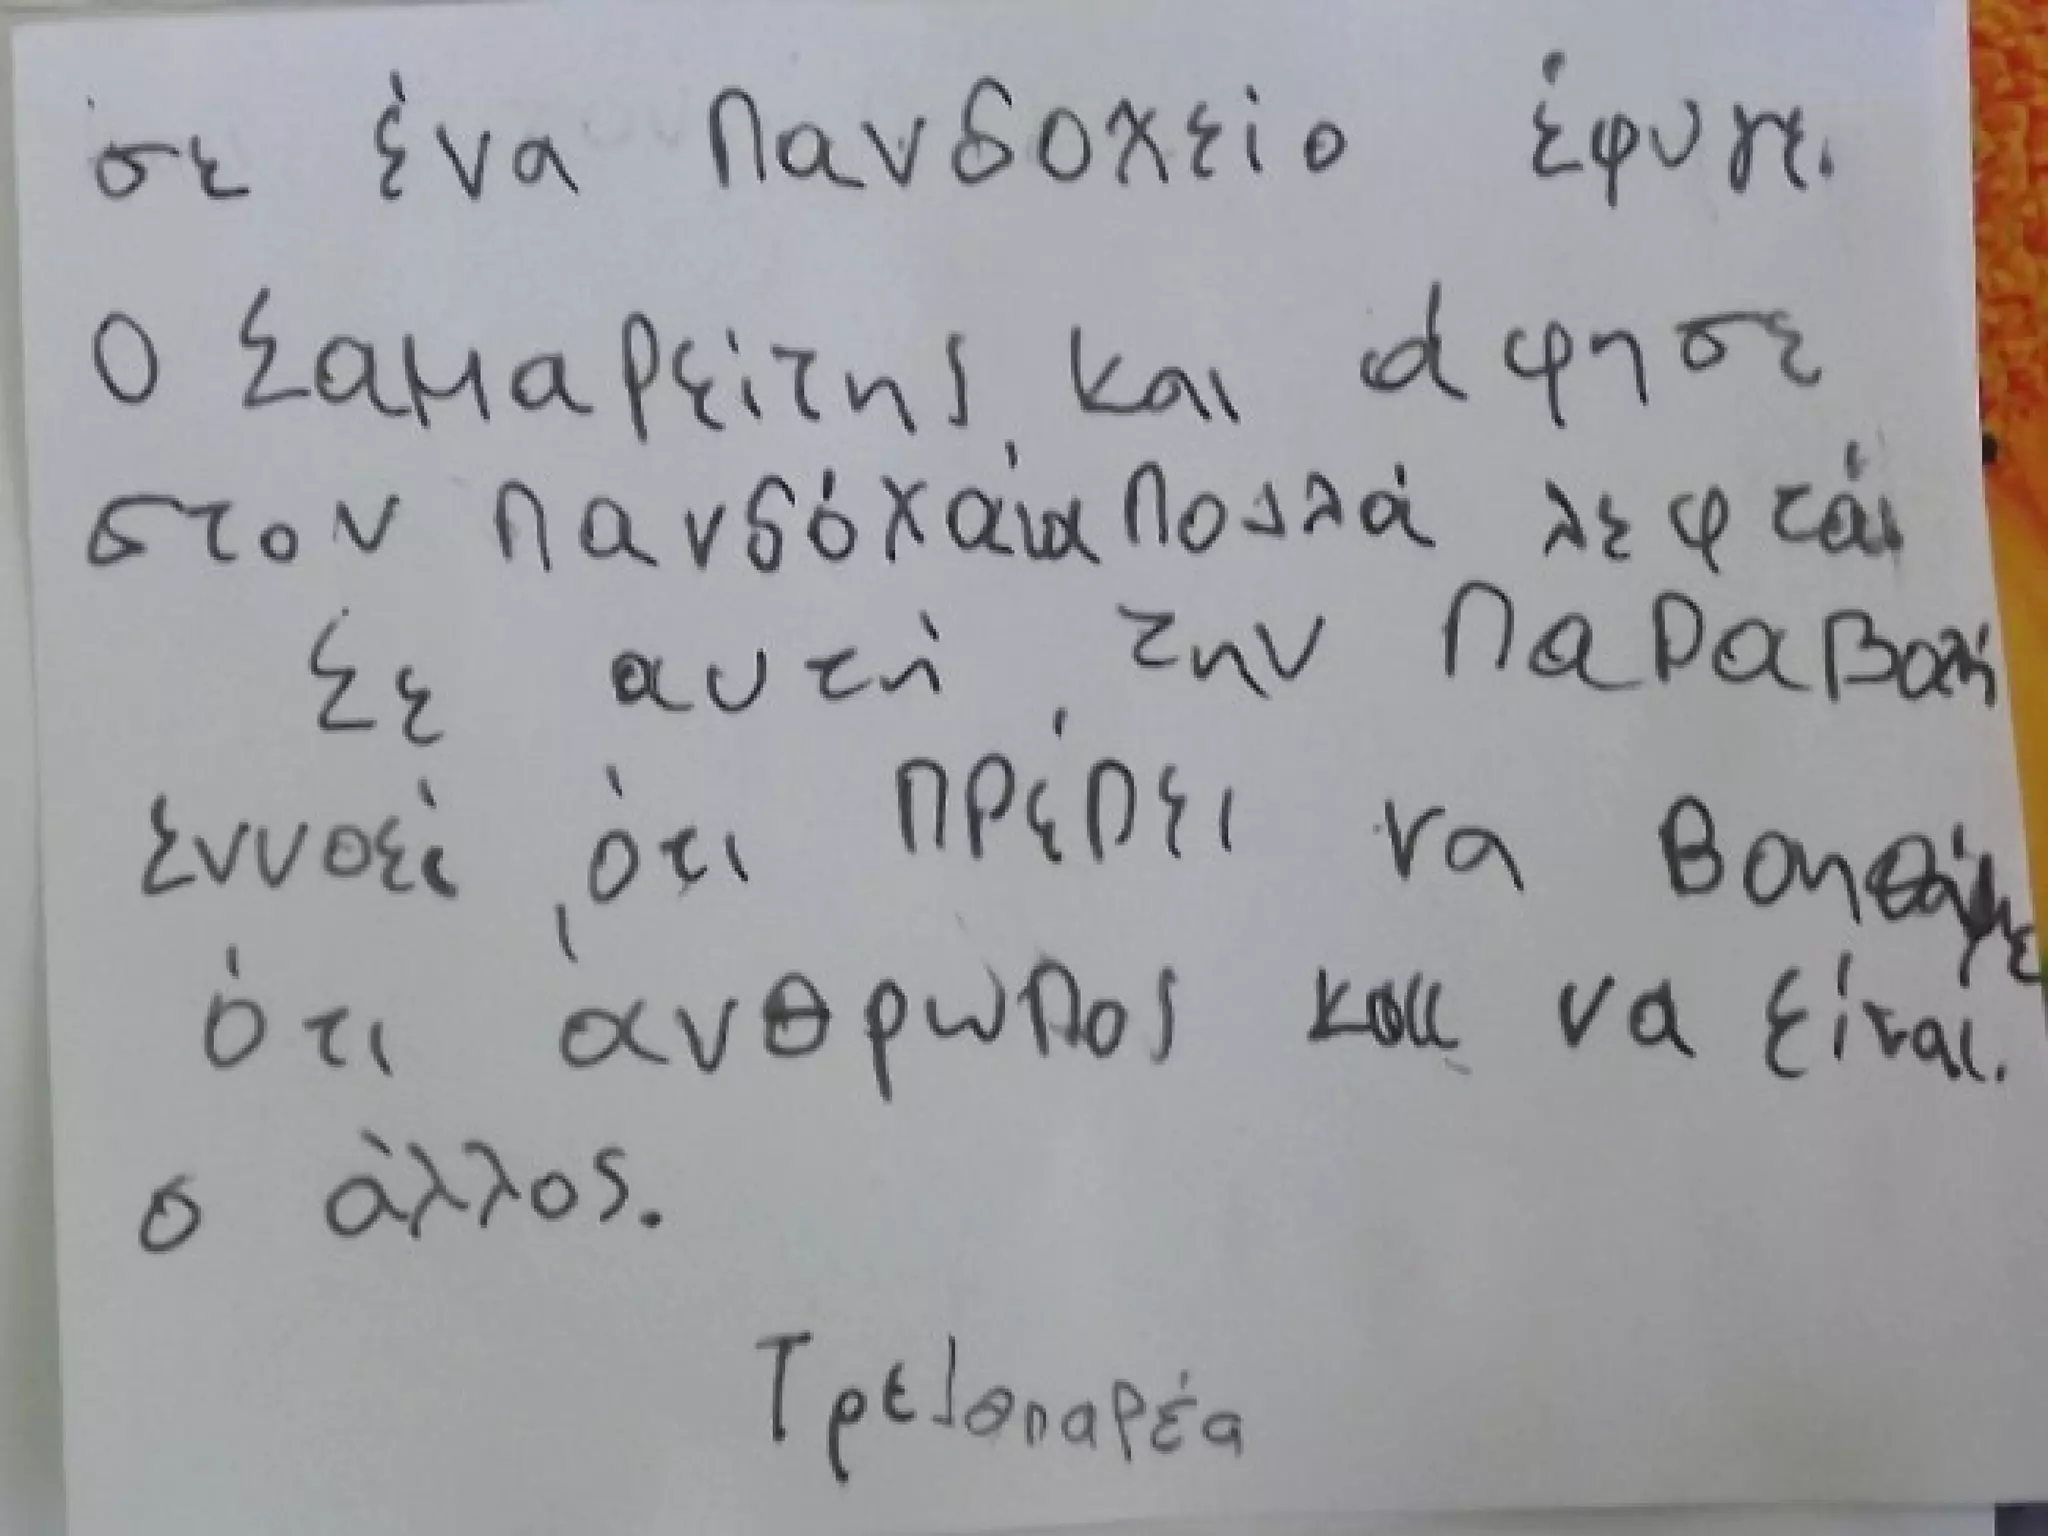 σε ένα πανδοχείο έφυγε.
Ο Σαμαρείτης και άφησε
στον πανδόχαια πολλά λεφτά
Σε αυτή την παραβολή
εννοεί ότι πρέπει να βοηθάμε
ότι άνθρωπος και να είναι.
ο άλλος.